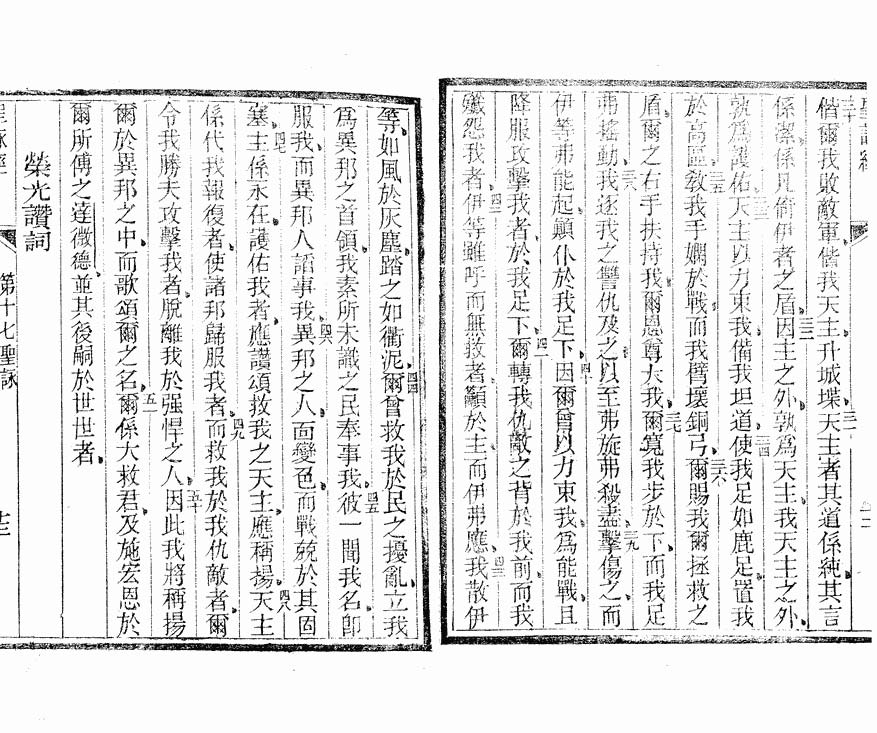 聖詠經
三十偕爾我敗敵軍偕我天主升城堞三一天主者其道係純其言
係潔係凡倚伊者之盾三二因主之外孰為天主我天主之外
孰為護佑三三天主以力束我備我坦道三四使我足如鹿足置我
於高區三五敎我手嫻於戰而我臂壞銅弓三六爾賜我爾拯救之
盾爾之右手扶持我爾慈尊大我三七爾寬我步於下而我足
弗搖動三八我逐我之讐仇及之以至弗旋弗殺盡三九擊傷之而
伊等弗能起顛仆於我足下四十因爾曾以力束我為能戰且
降服攻擊我者於我足下四一爾轉我仇敵之背於我前而我
殲怨我者四二伊等雖呼而無救者籲於主而伊弗應四三我散伊
等如風於灰塵踏之如衢泥四四爾曾救我於民之擾亂立我
為異邦之首領我素所未識之民奉事我四五彼一聞我名卽
服我而異邦人諂事我四六異邦之人面變色而戰兢於其固
塞四七主係永在護佑我者應讚頌救我之天主應稱揚四八天主
係代我報復者使諸邦歸服我者四九而救我於我仇敵者爾
令我勝夫攻擊我者脫離我於强悍之人五十因此我將稱揚
爾於異邦之中而歌頌爾之名五一爾係大救君及施宏恩於
爾所傅之達微德並其後嗣於世世者
榮光讚詞
聖詠經　第十七聖詠　十三